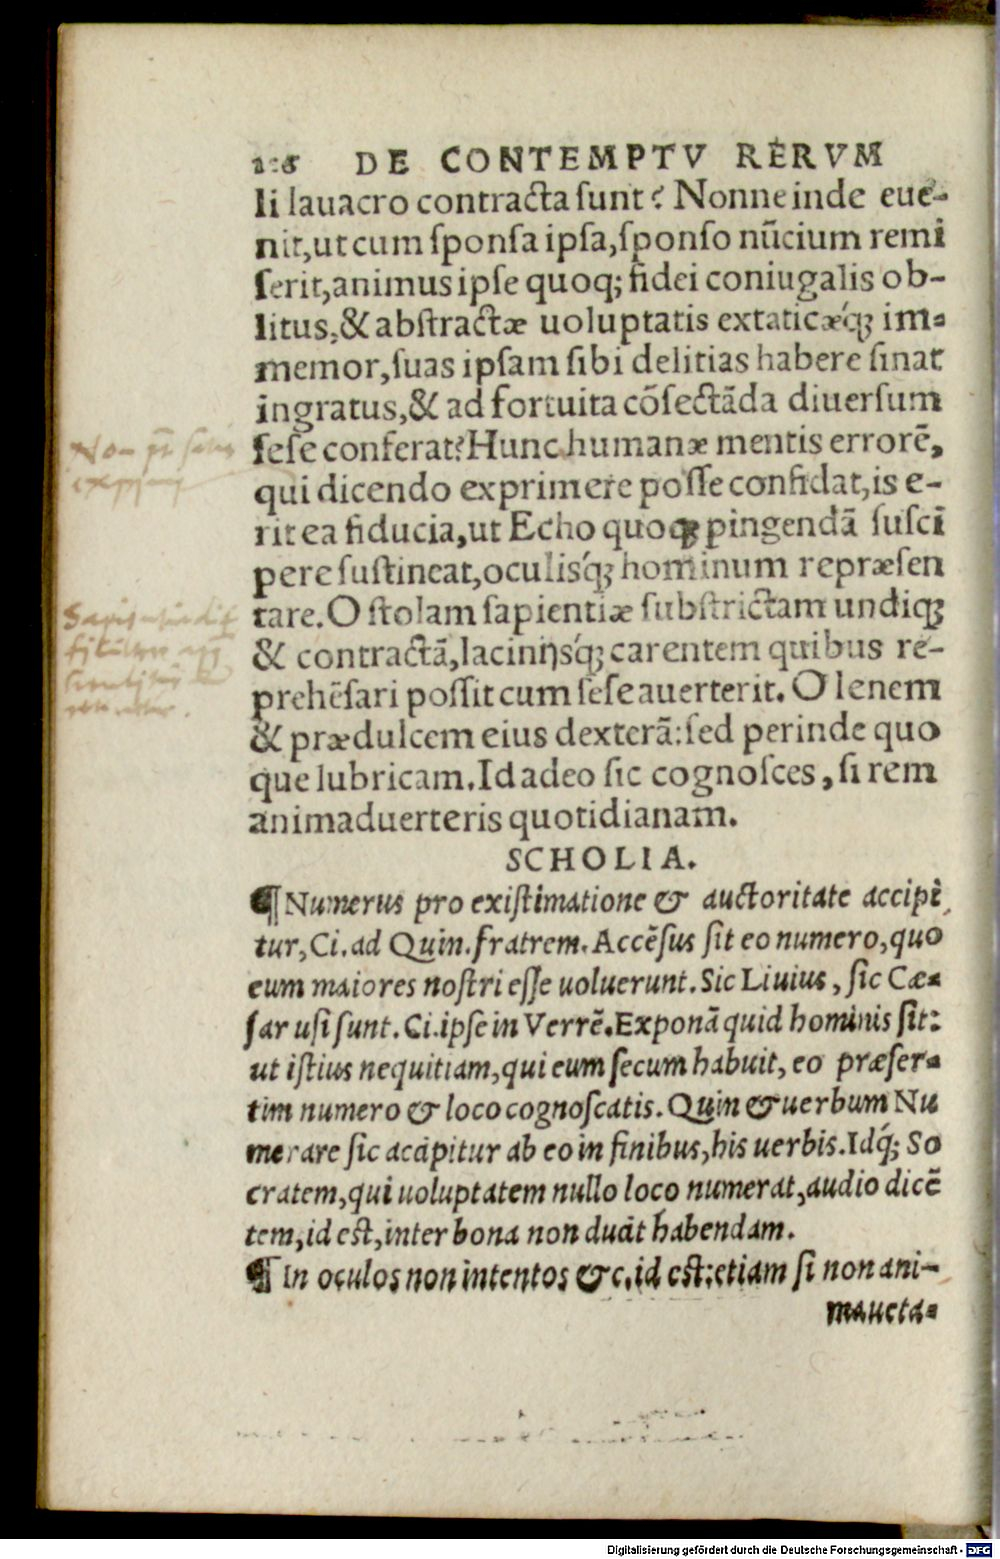 DE CONTEMPTV RERVM
li lauacro contracta sunt? Nonne inde eue-
nit, ut cum sponsa ipsa, sponso nūcium remi
serit, animus ipse quoq; fidei coniugalis ob-
litus, & abstractæ uoluptatis extaticæq́; im-
memor, suas ipsam sibi delitias habere sinat
ingratus, & ad fortuita cōsectāda diuersum
sese conferat? Hunc humanæ mentis errorē,
qui dicendo exprimere posse confidat, is e-
rit ea fiducia, ut Echo quoq; pingendā susci
pere sustineat, oculisq́; hominum repræsen
tare. O stolam sapientiæ substrictam undiq;
& contractā, lacinijsq́; carentem quibus re-
prehēsari possit cum sese auerterit. O lenem
& prædulcem eius dexterā: sed perinde quo
que lubricam. Id adeo sic cognosces, si rem
animaduerteris quotidianam.
SCHOLIA.
¶ Numerus pro existimatione & auctoritate accipi
tur, Ci. ad Quin. fratrem. Accēsus sit eo numero, quo
eum maiores nostri esse uoluerunt. Sic Liuius, sic Cæ-
sar usi sunt. Ci. ipse in Verrē. Exponā quid hominis sit:
ut istius nequitiam, qui eum secum habuit, eo præser-
tim numero & loco cognoscatis. Quin & uerbum Nu
merare sic accipitur ab eo in finibus, his uerbis. Idq́; So
cratem, qui uoluptatem nullo loco numerat, audio dicē
tem, id est, inter bona non ducit habendam.
¶ In oculos non intentos &c. id est: etiam si non ani-
maueta-
Digitalisierung gefördert durch die Deutsche Forschungsgemeinschaft - DFG